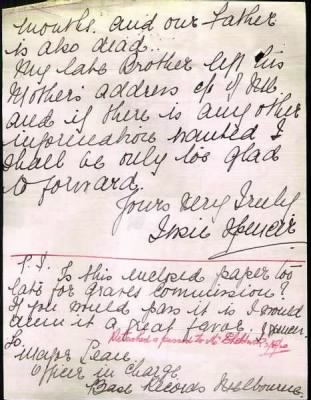 months. and our Father
is also dead..
My late Brother left his
Mothers address
and if there is any other
information wanted I
shall be only too glad
to forward.
Yours Very Truly
Spencer
P.S. Is this enclosed paper too
late for graves commission?
If you would pass it is I would
deem it a great favor. Spencer
To.
Major Lean
Officer in Charge
Base Records Melbourne.